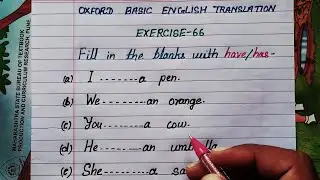 OXFORD BASIC ENGLISH TRANSLATION
EXERCISE-66
Fill in the blanks with have/has-
(a) I --------a pen.
(b) We --------an orange.
(c) You --------a cow.
(d) He --------an umbrella
(e) She --------a
MAHARASHTRA STATE BUREAU OF TEXTBOOK
PRODUCTION AND CURRICULUM RESEARCH, PUNE